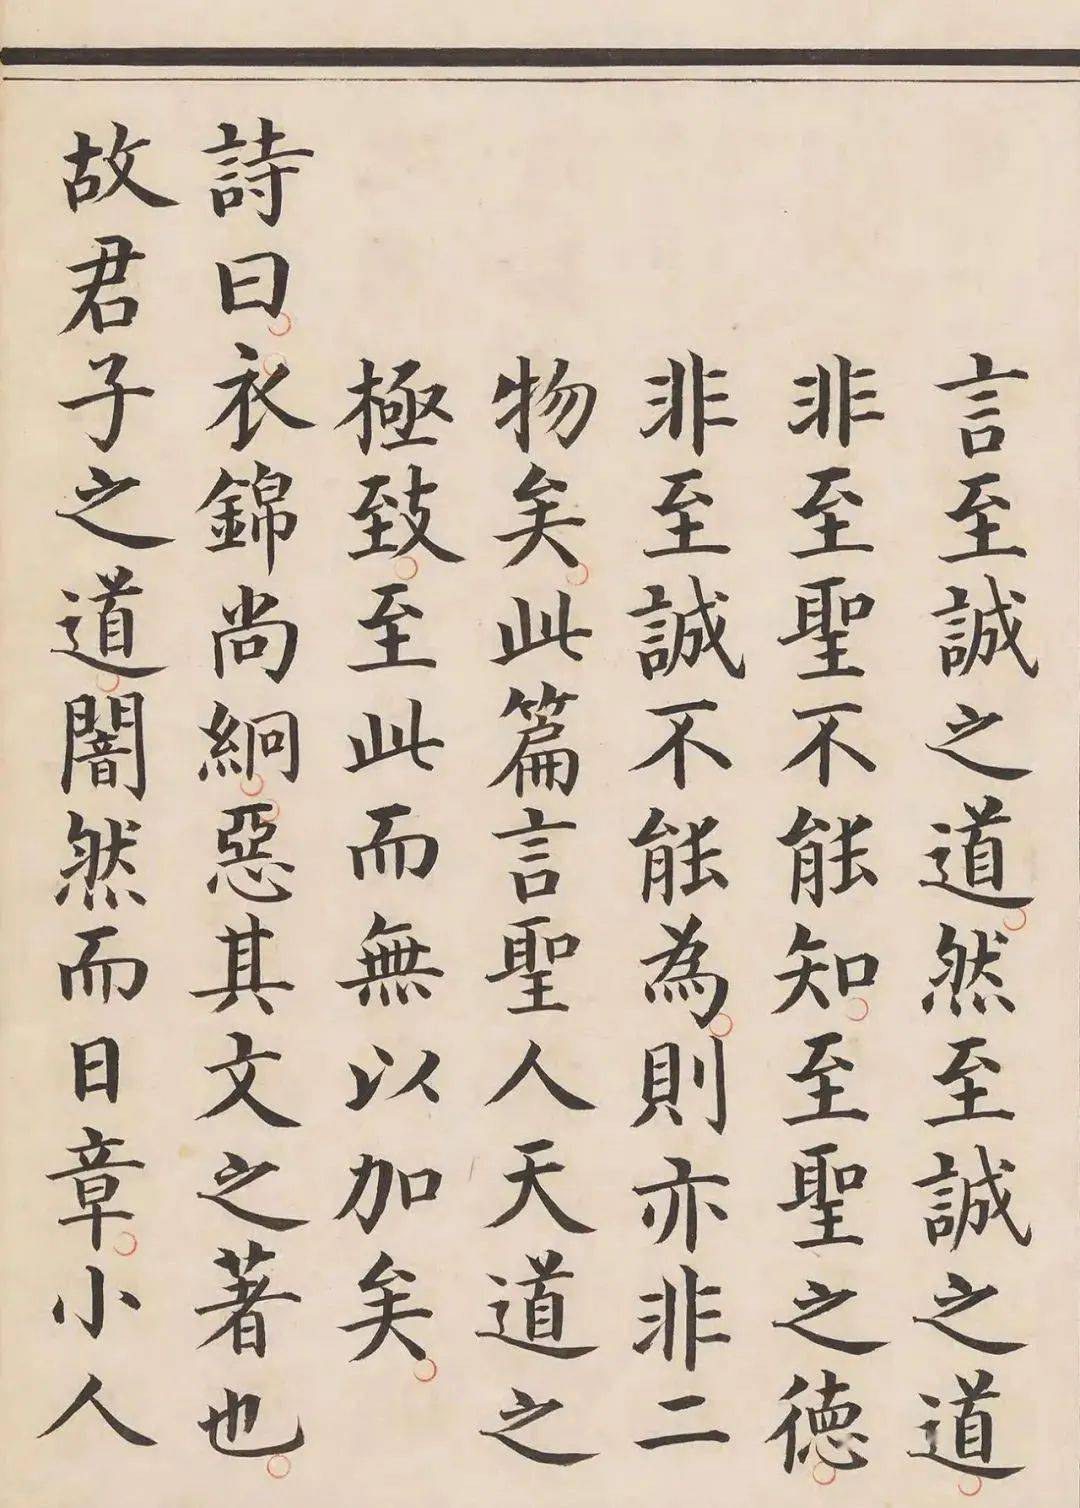 言至誠之道然至誠之道
非至聖不能知至聖之德
非至誠不能為則亦非二
物矣此篇言聖人天道之
極致至此而無以加矣
詩曰衣錦尚絅惡其文之著也
故君子之道闇然而日章小人